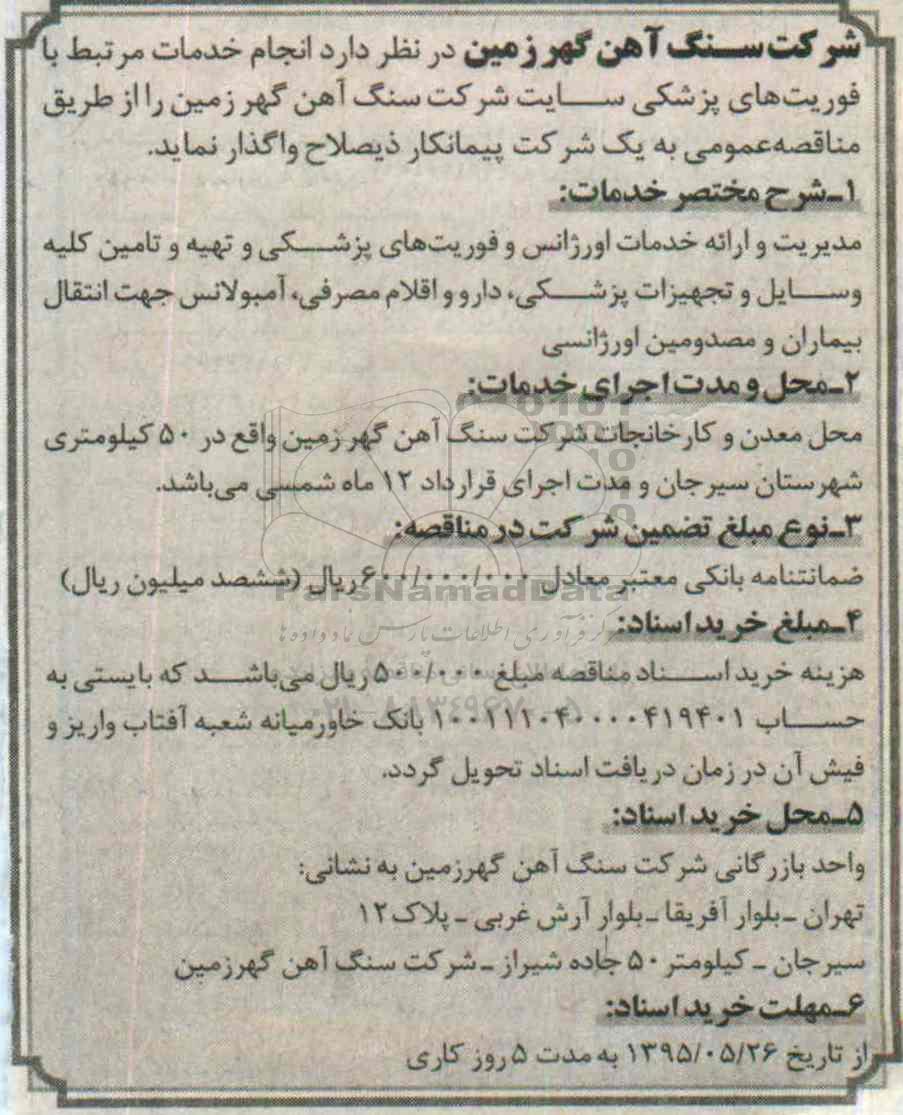 شرکت سنگ آهن گهرزمین در نظر دارد انجام خدمات مرتبط با
فوریت‌های پزشکی سایت شرکت سنگ آهن گهرزمین را از طریق
مناقصه‌عمومی به یک شرکت پیمانکار ذیصلاح واگذار نماید.
۱ـ‌شرح مختصر خدمات:
مدیریت و ارائه خدمات اورژانس و فوریت‌های پزشکی و تهیه و تامین کلیه
وسایل و تجهیزات پزشکی، دارو و اقلام مصرفی، آمبولانس جهت انتقال
بیماران و مصدومین اورژانسی
۲ـ‌محل و مدت اجرای خدمات:
محل معدن و کارخانجات شرکت سنگ آهن گهرزمین واقع در ۵۰ کیلومتری
شهرستان سیرجان و مدت اجرای قرارداد ۱۲ ماه شمسی می‌باشد.
۳ـ‌نوع مبلغ تضمین شرکت در مناقصه:
ضمانتنامه بانکی معتبر معادل ۶۰۰/۰۰۰/۰۰۰ ریال (ششصد میلیون ریال)
ParsNamadData
۴ـ‌مبلغ خرید اسناد:
هزینه خرید اسناد مناقصه مبلغ ۵۰۰/۰۰۰ ریال می‌باشد که بایستی به
حساب ۱۰۰۱۱۱۰۴۰۰۰۰۴۱۹۴۰۱ بانک خاورمیانه شعبه آفتاب واریز و
فیش آن در زمان دریافت اسناد تحویل گردد.
۵ـ‌محل خرید اسناد:
واحد بازرگانی شرکت سنگ آهن گهرزمین به نشانی:
تهران ـ‌بلوار آفریقا ـ‌بلوار آرش غربی ـ پلاک۱۲
سیرجان ـ کیلومتر ۵۰ جاده شیراز ـ‌شرکت سنگ آهن گهرزمین
۶ـ‌مهلت خرید اسناد:
از تاریخ ۱۳۹۵/۰۵/۲۶ به مدت ۵ روز کاری